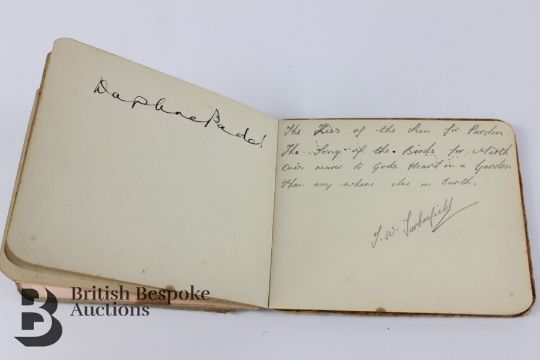 Daphne Padel
The Kiss of the Sun for Pardon
The Song of the Birds for Mirth
One's nearer to Gods Heart in a Garden
Than any where else on Earth.
J. W.
British Bespoke
Auctions